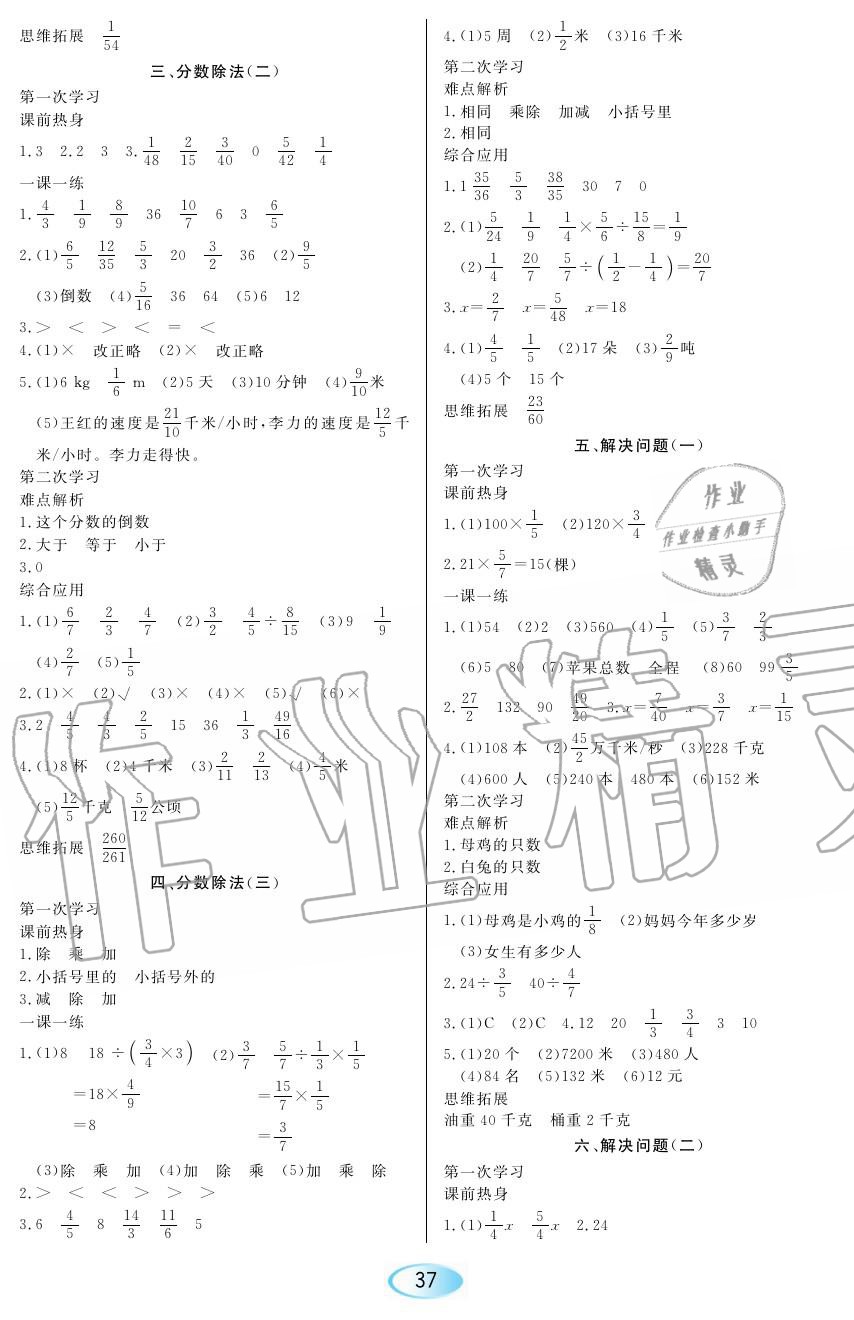 思维拓展 1/54
三、分数除法(二)
第一次学习
课前热身
1.3 2.2 3 3.1/48 2/15 3/40 0 5/42 1/4
一课一练
1.4/3 1/9 8/9 36 10/7 6 3 6/5
2.(1)6/5 12/35 5/3 20 3/2 36 (2)9/5
(3)倒数 (4)5/16 36 64 (5)6 12
3.> < > < = <
4.(1)× 改正略 (2)× 改正略
5.(1)6 kg 1/6 m (2)5天 (3)10分钟 (4)9/10米
(5)王红的速度是21/10千米/小时,李力的速度是12/5千
米/小时。李力走得快。
第二次学习
难点解析
1.这个分数的倒数
2.大于 等于 小于
3.0
综合应用
1.(1)6/7 2/3 4/7 (2)3/2 4/5÷8/15 (3)9 1/9
(4)2/7 (5)1/5
2.(1)× (2)√ (3)× (4)× (5)√ (6)×
3.2 4/5 4/3 2/5 15 36 1/3 49/16
4.(1)8杯 (2)4千米 (3)2/11 2/13 (4)4/5米
(5)12/5千克 5/12公顷
思维拓展 260/261
四、分数除法(三)
第一次学习
课前热身
1.除 乘 加
2.小括号里的 小括号外的
3.减 除 加
一课一练
1.(1)8 18÷(3/4×3) (2)3/7 5/7÷1/3×1/5
=18×4/9 =15/7×1/5
=8 =3/7
(3)除 乘 加 (4)加 除 乘 (5)加 乘 除
2.> < < > > >
3.6 4/5 8 14/3 11/6 5
4.(1)5周 (2)1/2米 (3)16千米
第二次学习
难点解析
1.相同 乘除 加减 小括号里
2.相同
综合应用
1.1 35/36 5/3 38/35 30 7 0
2.(1)5/24 1/9 1/4×5/6÷15/8=1/9
(2)1/4 20/7 5/7÷(1/2-1/4)=20/7
3.x=2/7 x=5/48 x=18
4.(1)4/5 1/5 (2)17朵 (3)2/9吨
(4)5个 15个
思维拓展 23/60
五、解决问题(一)
第一次学习
课前热身
1.(1)100×1/5 (2)120×3/4
2.21×5/7=15(棵)
一课一练
1.(1)54 (2)2 (3)560 (4)1/5 (5)3/7 2/3
(6)5 80 (7)苹果总数 全程 (8)60 99 3/5
2.27/2 132 90 49/20 3.x=7/40 x=3/7 x=1/15
4.(1)108本 (2)45/2万千米/秒 (3)228千克
(4)600人 (5)240本 480本 (6)152米
第二次学习
难点解析
1.母鸡的只数
2.白兔的只数
综合应用
1.(1)母鸡是小鸡的1/8 (2)妈妈今年多少岁
(3)女生有多少人
2.24÷3/5 40÷4/7
3.(1)C (2)C 4.12 20 1/3 3/4 3 10
5.(1)20个 (2)7200米 (3)480人
(4)84名 (5)132米 (6)12元
思维拓展
油重40千克 桶重2千克
六、解决问题(二)
第一次学习
课前热身
1.(1)1/4x 5/4x 2.24
作业
作业检查小助手
精灵
作业精灵
37